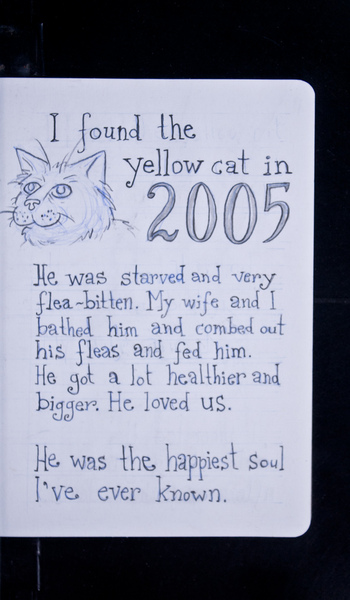 I found the
yellow cat in
2005
He was starved and very
flea-bitten. My wife and I
bathed him and combed out
his fleas and fed him.
He got a lot healthier and
bigger. He loved us.
He was the happiest soul
I've ever known.